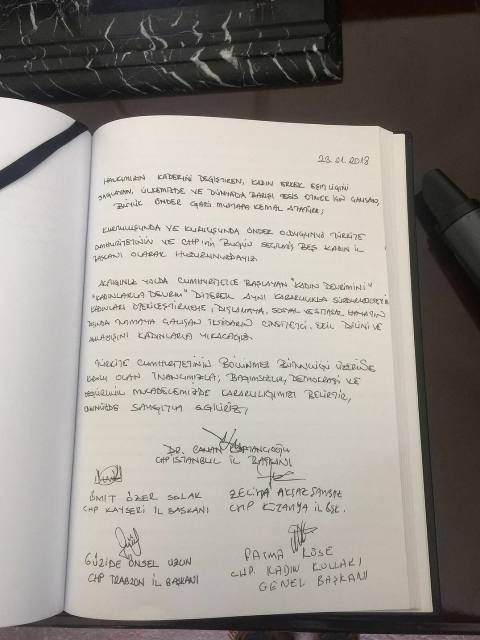 23.01.2018
HALKIMIZIN KADERİNİ DEĞİŞTİREN, KADIN ERKEK EŞİTLİĞİNİ
SAĞLAYAN, ÜLKEMİZDE VE DÜNYADA BARIŞI TESİS ETMEK İÇİN ÇALIŞAN,
BÜYÜK ÖNDER GAZİ MUSTAFA KEMAL ATATÜRK;
KURTULUŞUNDA VE KURULUŞUNDA ÖNDER OLDUĞUNUZ TÜRKİYE
CUMHURİYETİNİN VE CHP'NİN BUGÜN SEÇİLMİŞ BEŞ KADIN İL
BAŞKANI OLARAK HUZURUNUZDAYIZ.
AÇTIĞINIZ YOLDA CUMHURİYETLE BAŞLAYAN "KADIN DEVRİMİNİ"
"KADINLARLA DEVRİM" DİYEREK AYNI KARARLILIKLA
KADINLARI ÖTEKİLEŞTİRMEYE, DIŞLAMAYA, SOSYAL VE SİYASAL HAYATIN
DIŞINDA TUTMAYA ÇALIŞAN İKTİDARIN CİNSİYETÇİ, ERİL DİLİNİ VE
ANLAYIŞINI KADINLARLA YIKACAĞIZ.
TÜRKİYE CUMHURİYETİNİN BÖLÜNMEZ BÜTÜNLÜĞÜ ÜZERİNE
OLAN İNANCIMIZLA; BAĞIMSIZLIK, DEMOKRASİ VE
ÖZGÜRLÜK MÜCADELEMİZDE KARARLILIĞIMIZI BELİRTİR,
ÖNÜNÜZDE SAYGIYLA EĞİLİRİZ,
DR. CANAN KAFTANCIOĞLU
CHP İSTANBUL İL BAŞKANI
ÜMİT ÖZER SOLAK
CHP KAYSERİ İL BAŞKANI
ZELİHA AKSAZ ŞAHBAZ
CHP KÜTAHYA İL BŞK.
GÜZİDE ÖNSEL UZUN
CHP TRABZON İL BAŞKANI
FATMA KÖSE
CHP. KADIN KOLLARI
GENEL BAŞKANI